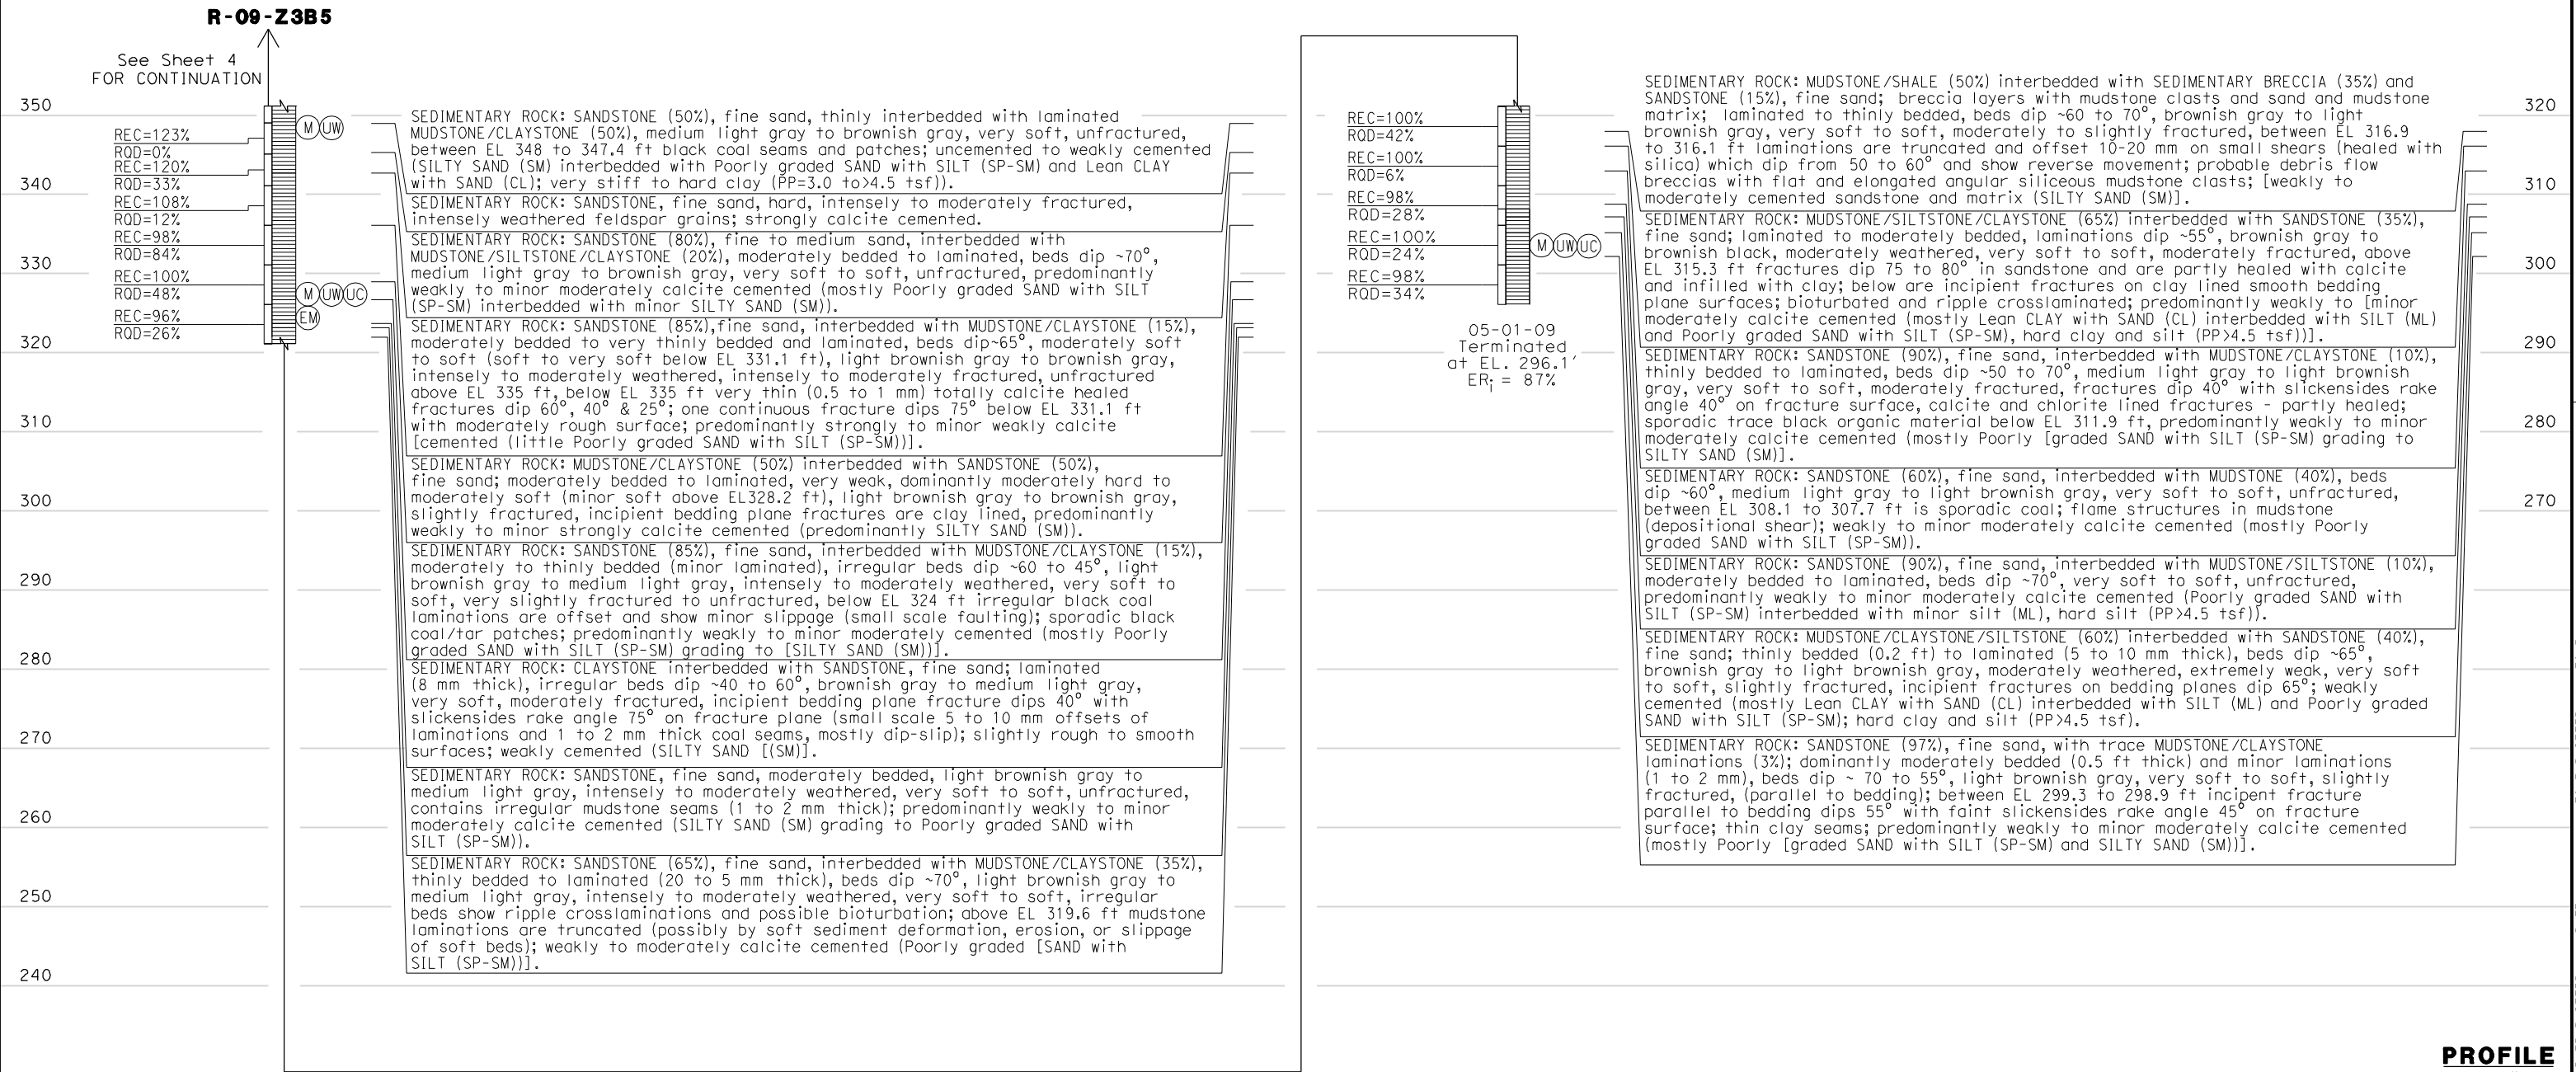 R-09-Z3B5
See Sheet 4
FOR CONTINUATION
350
340
330
320
310
300
290
280
270
260
250
240
REC=123%
RQD=0%
REC=120%
RQD=33%
REC=108%
RQD=12%
REC=98%
RQD=84%
REC=100%
RQD=48%
REC=96%
RQD=26%
M UW
M UW UC
EM
SEDIMENTARY ROCK: SANDSTONE (50%), fine sand, thinly interbedded with laminated
MUDSTONE/CLAYSTONE (50%), medium light gray to brownish gray, very soft, unfractured,
between EL 348 to 347.4 ft black coal seams and patches; uncemented to weakly cemented
(SILTY SAND (SM) interbedded with Poorly graded SAND with SILT (SP-SM) and Lean CLAY
with SAND (CL); very stiff to hard clay (PP=3.0 to>4.5 tsf)).
SEDIMENTARY ROCK: SANDSTONE, fine sand, hard, intensely to moderately fractured,
intensely weathered feldspar grains; strongly calcite cemented.
SEDIMENTARY ROCK: SANDSTONE (80%), fine to medium sand, interbedded with
MUDSTONE/SILTSTONE/CLAYSTONE (20%), moderately bedded to laminated, beds dip ~70°,
medium light gray to brownish gray, very soft to soft, unfractured, predominantly
weakly to minor moderately calcite cemented (mostly Poorly graded SAND with SILT
(SP-SM) interbedded with minor SILTY SAND (SM)).
SEDIMENTARY ROCK: SANDSTONE (85%),fine sand, interbedded with MUDSTONE/CLAYSTONE (15%),
moderately bedded to very thinly bedded and laminated, beds dip~65°, moderately soft
to soft (soft to very soft below EL 331.1 ft), light brownish gray to brownish gray,
intensely to moderately weathered, intensely to moderately fractured, unfractured
above EL 335 ft, below EL 335 ft very thin (0.5 to 1 mm) totally calcite healed
fractures dip 60°, 40° & 25°; one continuous fracture dips 75° below EL 331.1 ft
with moderately rough surface; predominantly strongly to minor weakly calcite
[cemented (little Poorly graded SAND with SILT (SP-SM))].
SEDIMENTARY ROCK: MUDSTONE/CLAYSTONE (50%) interbedded with SANDSTONE (50%),
fine sand; moderately bedded to laminated, very weak, dominantly moderately hard to
moderately soft (minor soft above EL328.2 ft), light brownish gray to brownish gray,
slightly fractured, incipient bedding plane fractures are clay lined, predominantly
weakly to minor strongly calcite cemented (predominantly SILTY SAND (SM)).
SEDIMENTARY ROCK: SANDSTONE (85%), fine sand, interbedded with MUDSTONE/CLAYSTONE (15%),
moderately to thinly bedded (minor laminated), irregular beds dip ~60 to 45°, light
brownish gray to medium light gray, intensely to moderately weathered, very soft to
soft, very slightly fractured to unfractured, below EL 324 ft irregular black coal
laminations are offset and show minor slippage (small scale faulting); sporadic black
coal/tar patches; predominantly weakly to minor moderately cemented (mostly Poorly
graded SAND with SILT (SP-SM) grading to [SILTY SAND (SM))].
SEDIMENTARY ROCK: CLAYSTONE interbedded with SANDSTONE, fine sand; laminated
(8 mm thick), irregular beds dip ~40 to 60°, brownish gray to medium light gray,
very soft, moderately fractured, incipient bedding plane fracture dips 40° with
slickensides rake angle 75° on fracture plane (small scale 5 to 10 mm offsets of
laminations and 1 to 2 mm thick coal seams, mostly dip-slip); slightly rough to smooth
surfaces; weakly cemented (SILTY SAND [(SM)].
SEDIMENTARY ROCK: SANDSTONE, fine sand, moderately bedded, light brownish gray to
medium light gray, intensely to moderately weathered, very soft to soft, unfractured,
contains irregular mudstone seams (1 to 2 mm thick); predominantly weakly to minor
moderately calcite cemented (SILTY SAND (SM) grading to Poorly graded SAND with
SILT (SP-SM)).
SEDIMENTARY ROCK: SANDSTONE (65%), fine sand, interbedded with MUDSTONE/CLAYSTONE (35%),
thinly bedded to laminated (20 to 5 mm thick), beds dip ~70°, light brownish gray to
medium light gray, intensely to moderately weathered, very soft to soft, irregular
beds show ripple crosslaminations and possible bioturbation; above EL 319.6 ft mudstone
laminations are truncated (possibly by soft sediment deformation, erosion, or slippage
of soft beds); weakly to moderately calcite cemented (Poorly graded [SAND with
SILT (SP-SM))].
REC=100%
RQD=42%
REC=100%
RQD=6%
REC=98%
RQD=28%
REC=100%
RQD=24%
REC=98%
RQD=34%
M UW UC
05-01-09
Terminated
at EL. 296.1'
ERi = 87%
SEDIMENTARY ROCK: MUDSTONE/SHALE (50%) interbedded with SEDIMENTARY BRECCIA (35%) and
SANDSTONE (15%), fine sand; breccia layers with mudstone clasts and sand and mudstone
matrix; laminated to thinly bedded, beds dip ~60 to 70°, brownish gray to light
brownish gray, very soft to soft, moderately to slightly fractured, between EL 316.9
to 316.1 ft laminations are truncated and offset 10-20 mm on small shears (healed with
silica) which dip from 50 to 60° and show reverse movement; probable debris flow
breccias with flat and elongated angular siliceous mudstone clasts; [weakly to
moderately cemented sandstone and matrix (SILTY SAND (SM)].
SEDIMENTARY ROCK: MUDSTONE/SILTSTONE/CLAYSTONE (65%) interbedded with SANDSTONE (35%),
fine sand; laminated to moderately bedded, laminations dip ~55°, brownish gray to
brownish black, moderately weathered, very soft to soft, moderately fractured, above
EL 315.3 ft fractures dip 75 to 80° in sandstone and are partly healed with calcite
and infilled with clay; below are incipient fractures on clay lined smooth bedding
plane surfaces; bioturbated and ripple crosslaminated; predominantly weakly to [minor
moderately calcite cemented (mostly Lean CLAY with SAND (CL) interbedded with SILT (ML)
and Poorly graded SAND with SILT (SP-SM), hard clay and silt (PP>4.5 tsf))].
SEDIMENTARY ROCK: SANDSTONE (90%), fine sand, interbedded with MUDSTONE/CLAYSTONE (10%),
thinly bedded to laminated, beds dip ~50 to 70°, medium light gray to light brownish
gray, very soft to soft, moderately fractured, fractures dip 40° with slickensides rake
angle 40° on fracture surface, calcite and chlorite lined fractures - partly healed;
sporadic trace black organic material below EL 311.9 ft, predominantly weakly to minor
moderately calcite cemented (mostly Poorly [graded SAND with SILT (SP-SM) grading to
SILTY SAND (SM)].
SEDIMENTARY ROCK: SANDSTONE (60%), fine sand, interbedded with MUDSTONE (40%), beds
dip ~60°, medium light gray to light brownish gray, very soft to soft, unfractured,
between EL 308.1 to 307.7 ft is sporadic coal; flame structures in mudstone
(depositional shear); weakly to minor moderately calcite cemented (mostly Poorly
graded SAND with SILT (SP-SM)).
SEDIMENTARY ROCK: SANDSTONE (90%), fine sand, interbedded with MUDSTONE/SILTSTONE (10%),
moderately bedded to laminated, beds dip ~70°, very soft to soft, unfractured,
predominantly weakly to minor moderately calcite cemented (Poorly graded SAND with
SILT (SP-SM) interbedded with minor silt (ML), hard silt (PP>4.5 tsf)).
SEDIMENTARY ROCK: MUDSTONE/CLAYSTONE/SILTSTONE (60%) interbedded with SANDSTONE (40%),
fine sand; thinly bedded (0.2 ft) to laminated (5 to 10 mm thick), beds dip ~65°,
brownish gray to light brownish gray, moderately weathered, extremely weak, very soft
to soft, slightly fractured, incipient fractures on bedding planes dip 65°; weakly
cemented (mostly Lean CLAY with SAND (CL) interbedded with SILT (ML) and Poorly graded
SAND with SILT (SP-SM); hard clay and silt (PP>4.5 tsf).
SEDIMENTARY ROCK: SANDSTONE (97%), fine sand, with trace MUDSTONE/CLAYSTONE
laminations (3%); dominantly moderately bedded (0.5 ft thick) and minor laminations
(1 to 2 mm), beds dip ~ 70 to 55°, light brownish gray, very soft to soft, slightly
fractured, (parallel to bedding); between EL 299.3 to 298.9 ft incipent fracture
parallel to bedding dips 55° with faint slickensides rake angle 45° on fracture
surface; thin clay seams; predominantly weakly to minor moderately calcite cemented
(mostly Poorly [graded SAND with SILT (SP-SM) and SILTY SAND (SM))].
320
310
300
290
280
270
PROFILE